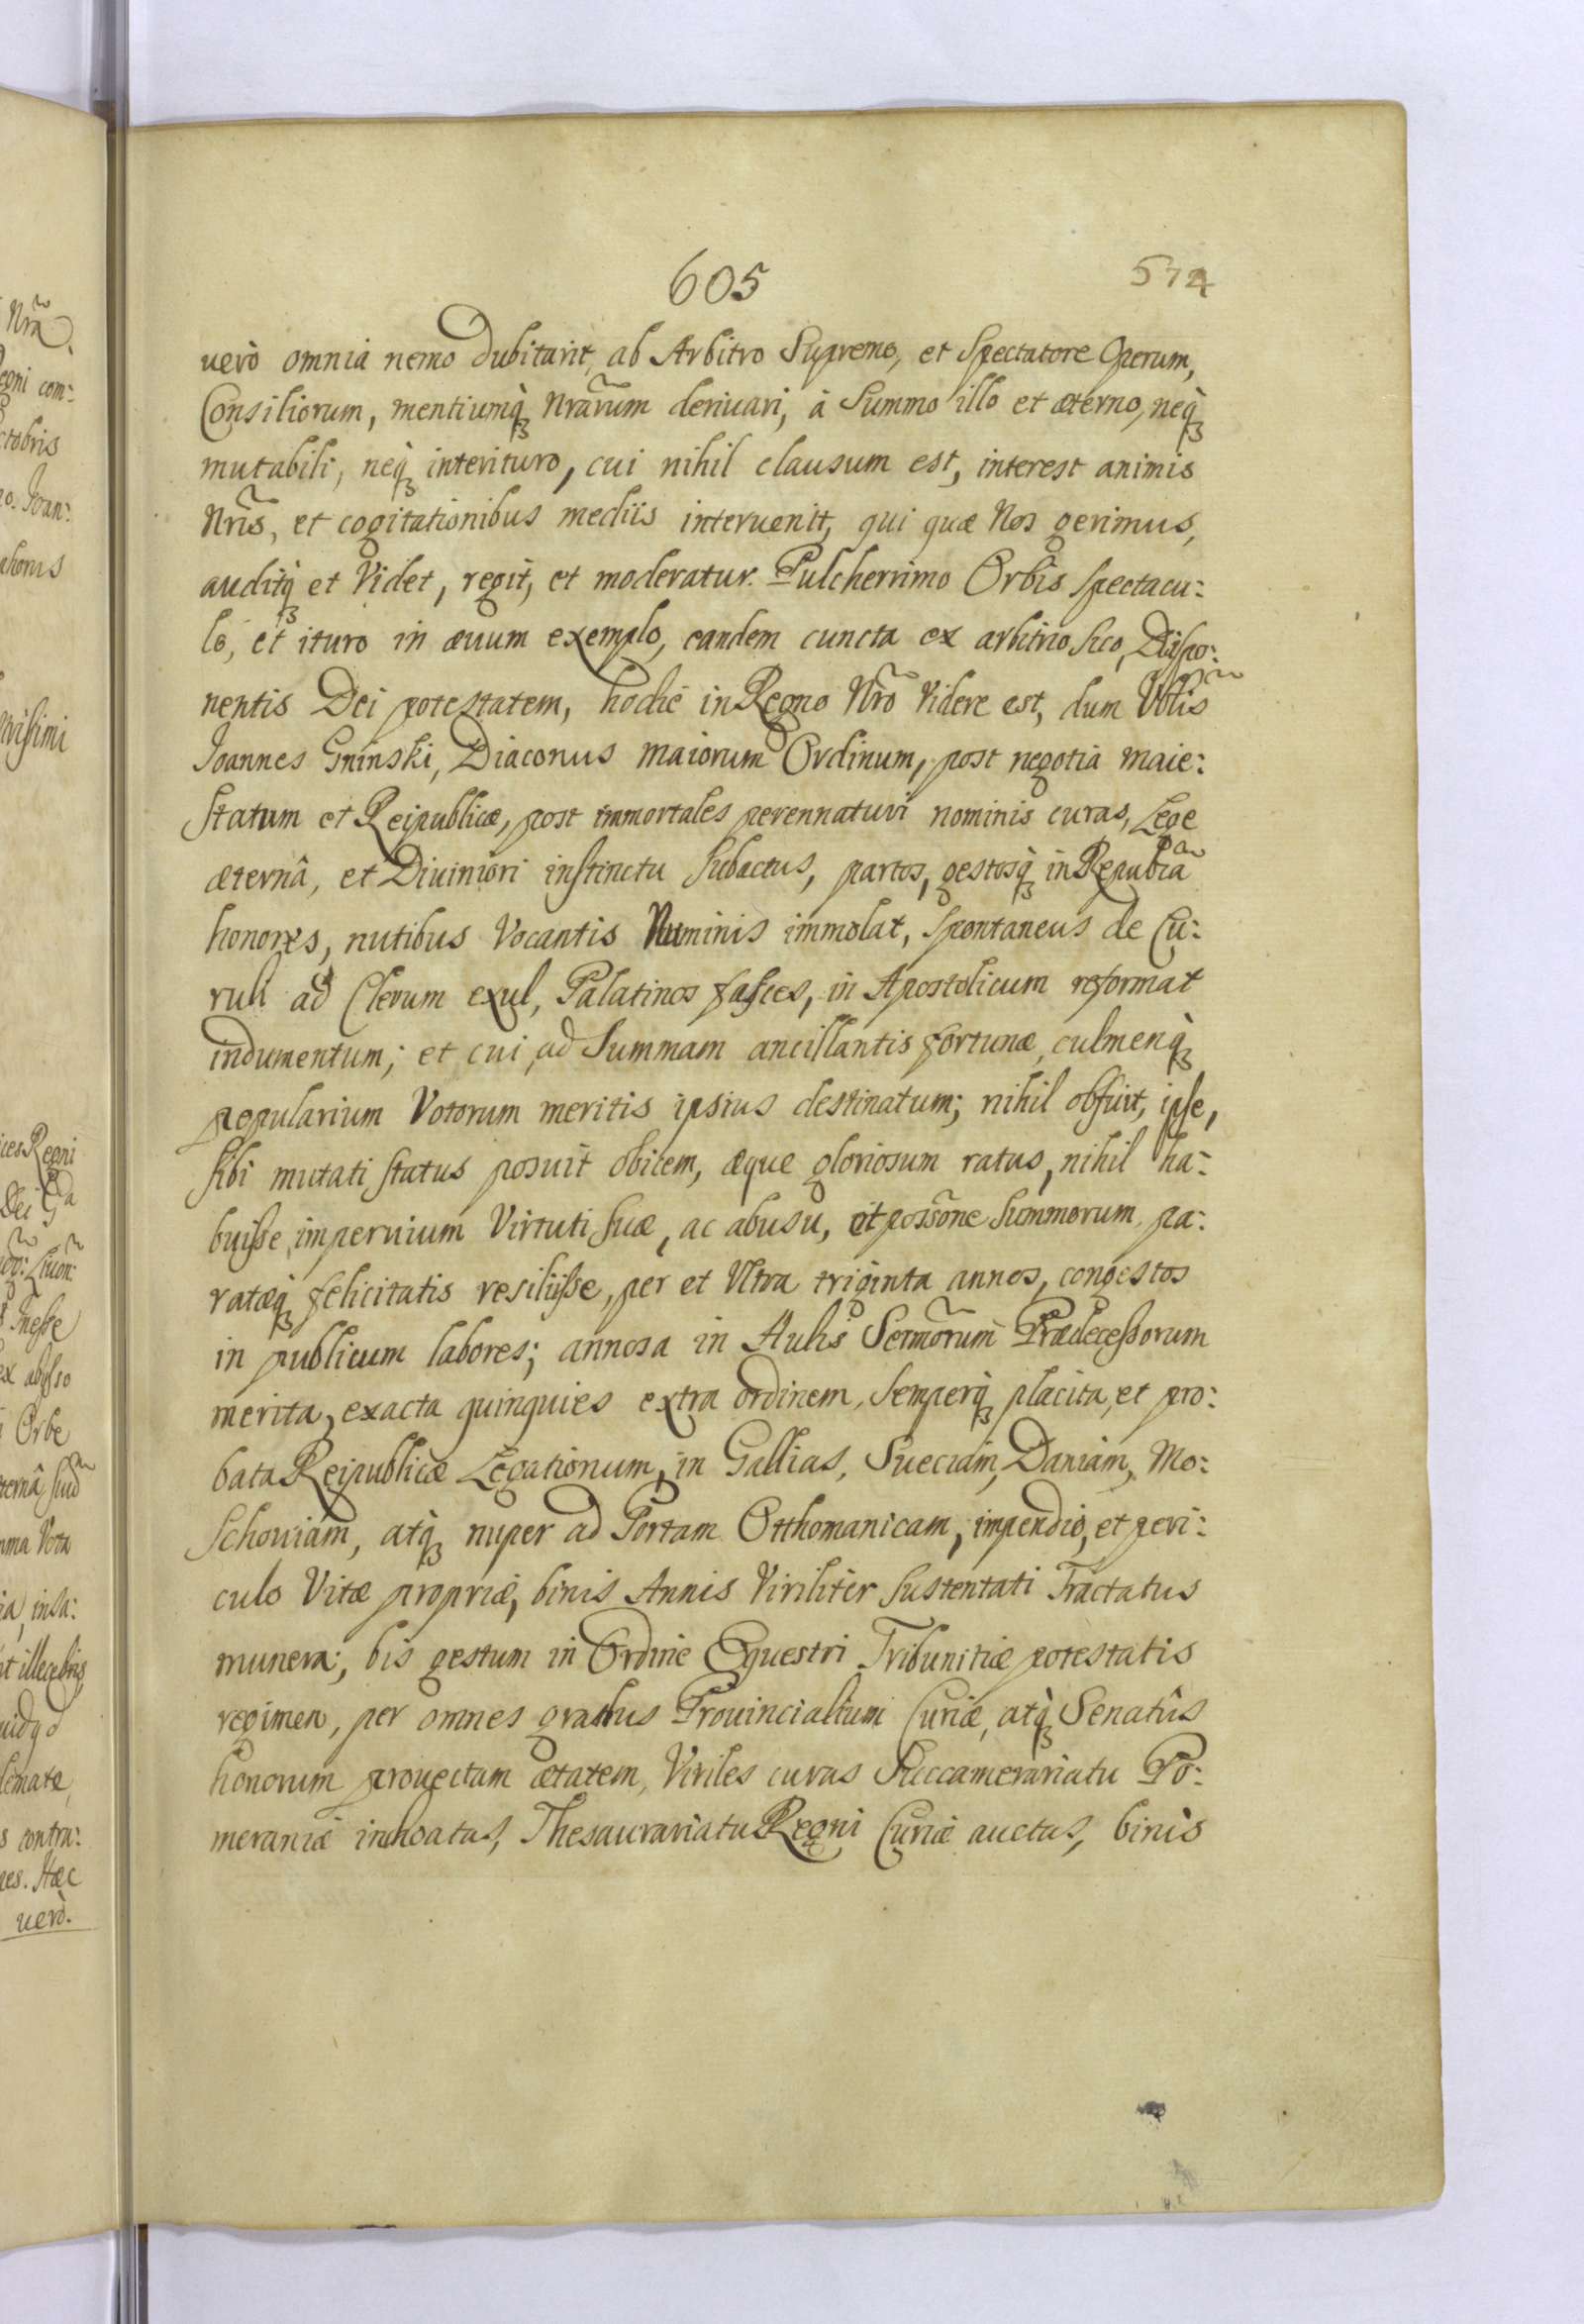 605
574
uerò omnia nemo dubitarit, ab Arbitro Supremo, et Spectatore Operum,
Consiliorum, mentiumq̀ꝫ Nrãrum deriuari, à Summo illo et æterno, neq̀ꝫ
mutabili, neq̀ꝫ interituro, cui nihil clausum est, interest animis
Nrĩs, et cogitationibus mediis interuenit, qui quæ Nos gerimus,
auditq̀ꝫ et Videt, regit, et moderatur. Pulcherrimo Orbis spectacu:
lo, et ituro in æuum exemplo, eandem cuncta ex arbitrio suo, Dispo:
nentis Dei potestatem, hodie in Regno Nrõ Videre est, dum
Joannes Gninski, Diaconus maiorum Ordinum, post negotia maie:
statum et Reipublicæ, post immortales perennaturi nominis curas, Lege
æternâ, et Diviniori instinctu subactus, partos, gestosq̀ꝫ in Repubcã
honores, nutibus Vocantis Numinis immolat, spontaneus de Cu:
ruli ad Clerum exul, Palatinos fasces, in Apostolicum reformat
indumentum; et cui ad Summam ancillantis fortunæ, culmenq̀ꝫ
popularium Votorum meritis ipsius destinatum; nihil obfuit, ipse,
sibi mutati status posuit obicem, æque gloriosum ratus, nihil ha:
buisse imperuium Virtuti suæ, ac abusu, et possõne Summorum, pa:
ratæq̀ꝫ felicitatis resiliisse, per et Ultra triginta annos, congestos
in publicum labores; annosa in Aulis Sermõrum Prædecessorum
merita, exacta quinquies extra ordinem, semperq̀ꝫ placita, et pro:
bata Reipublicæ Legationum, in Gallias, Sueciam, Daniam, Mo:
schouiam, atq̀ꝫ nuper ad Portam Otthomanicam, impendio, et peri:
culo Vitæ propriæ, binis Annis Viriliter sustentati Tractatus
munera; bis gestum in Ordine Equestri Tribunitiæ potestatis
regimen, per omnes gradus Prouincialium Curiæ, atq̀ꝫ Senatûs
honorum prouectam ætatem, Viriles curas Succamerariatu Po:
meraniæ inchoatas, Thesaurariatu Regni Curiæ auctas, binis